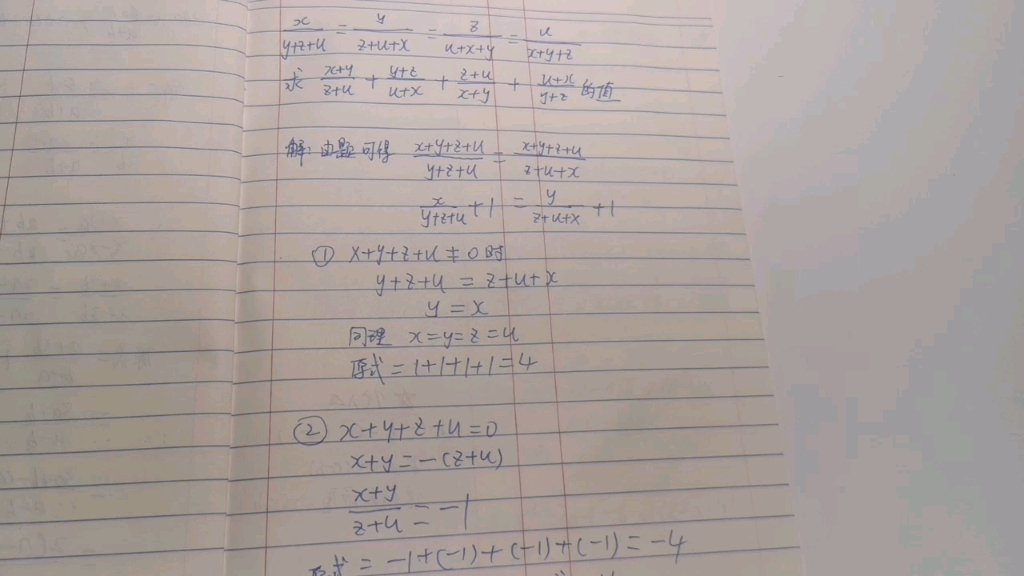 x/(y+z+u) = y/(z+u+x) = z/(u+x+y) = u/(x+y+z)
求 (x+y)/(z+u) + (y+z)/(u+x) + (z+u)/(x+y) + (u+x)/(y+z) 的值
解: 由题可得 (x+y+z+u)/(y+z+u) = (x+y+z+u)/(z+u+x)
x/(y+z+u) + 1 = y/(z+u+x) + 1
① x+y+z+u ≠ 0时
y+z+u = z+u+x
y = x
同理 x=y=z=u
原式 = 1+1+1+1 = 4
② x+y+z+u=0
x+y = -(z+u)
(x+y)/(z+u) = -1
原式 = -1+(-1)+(-1)+(-1) = -4